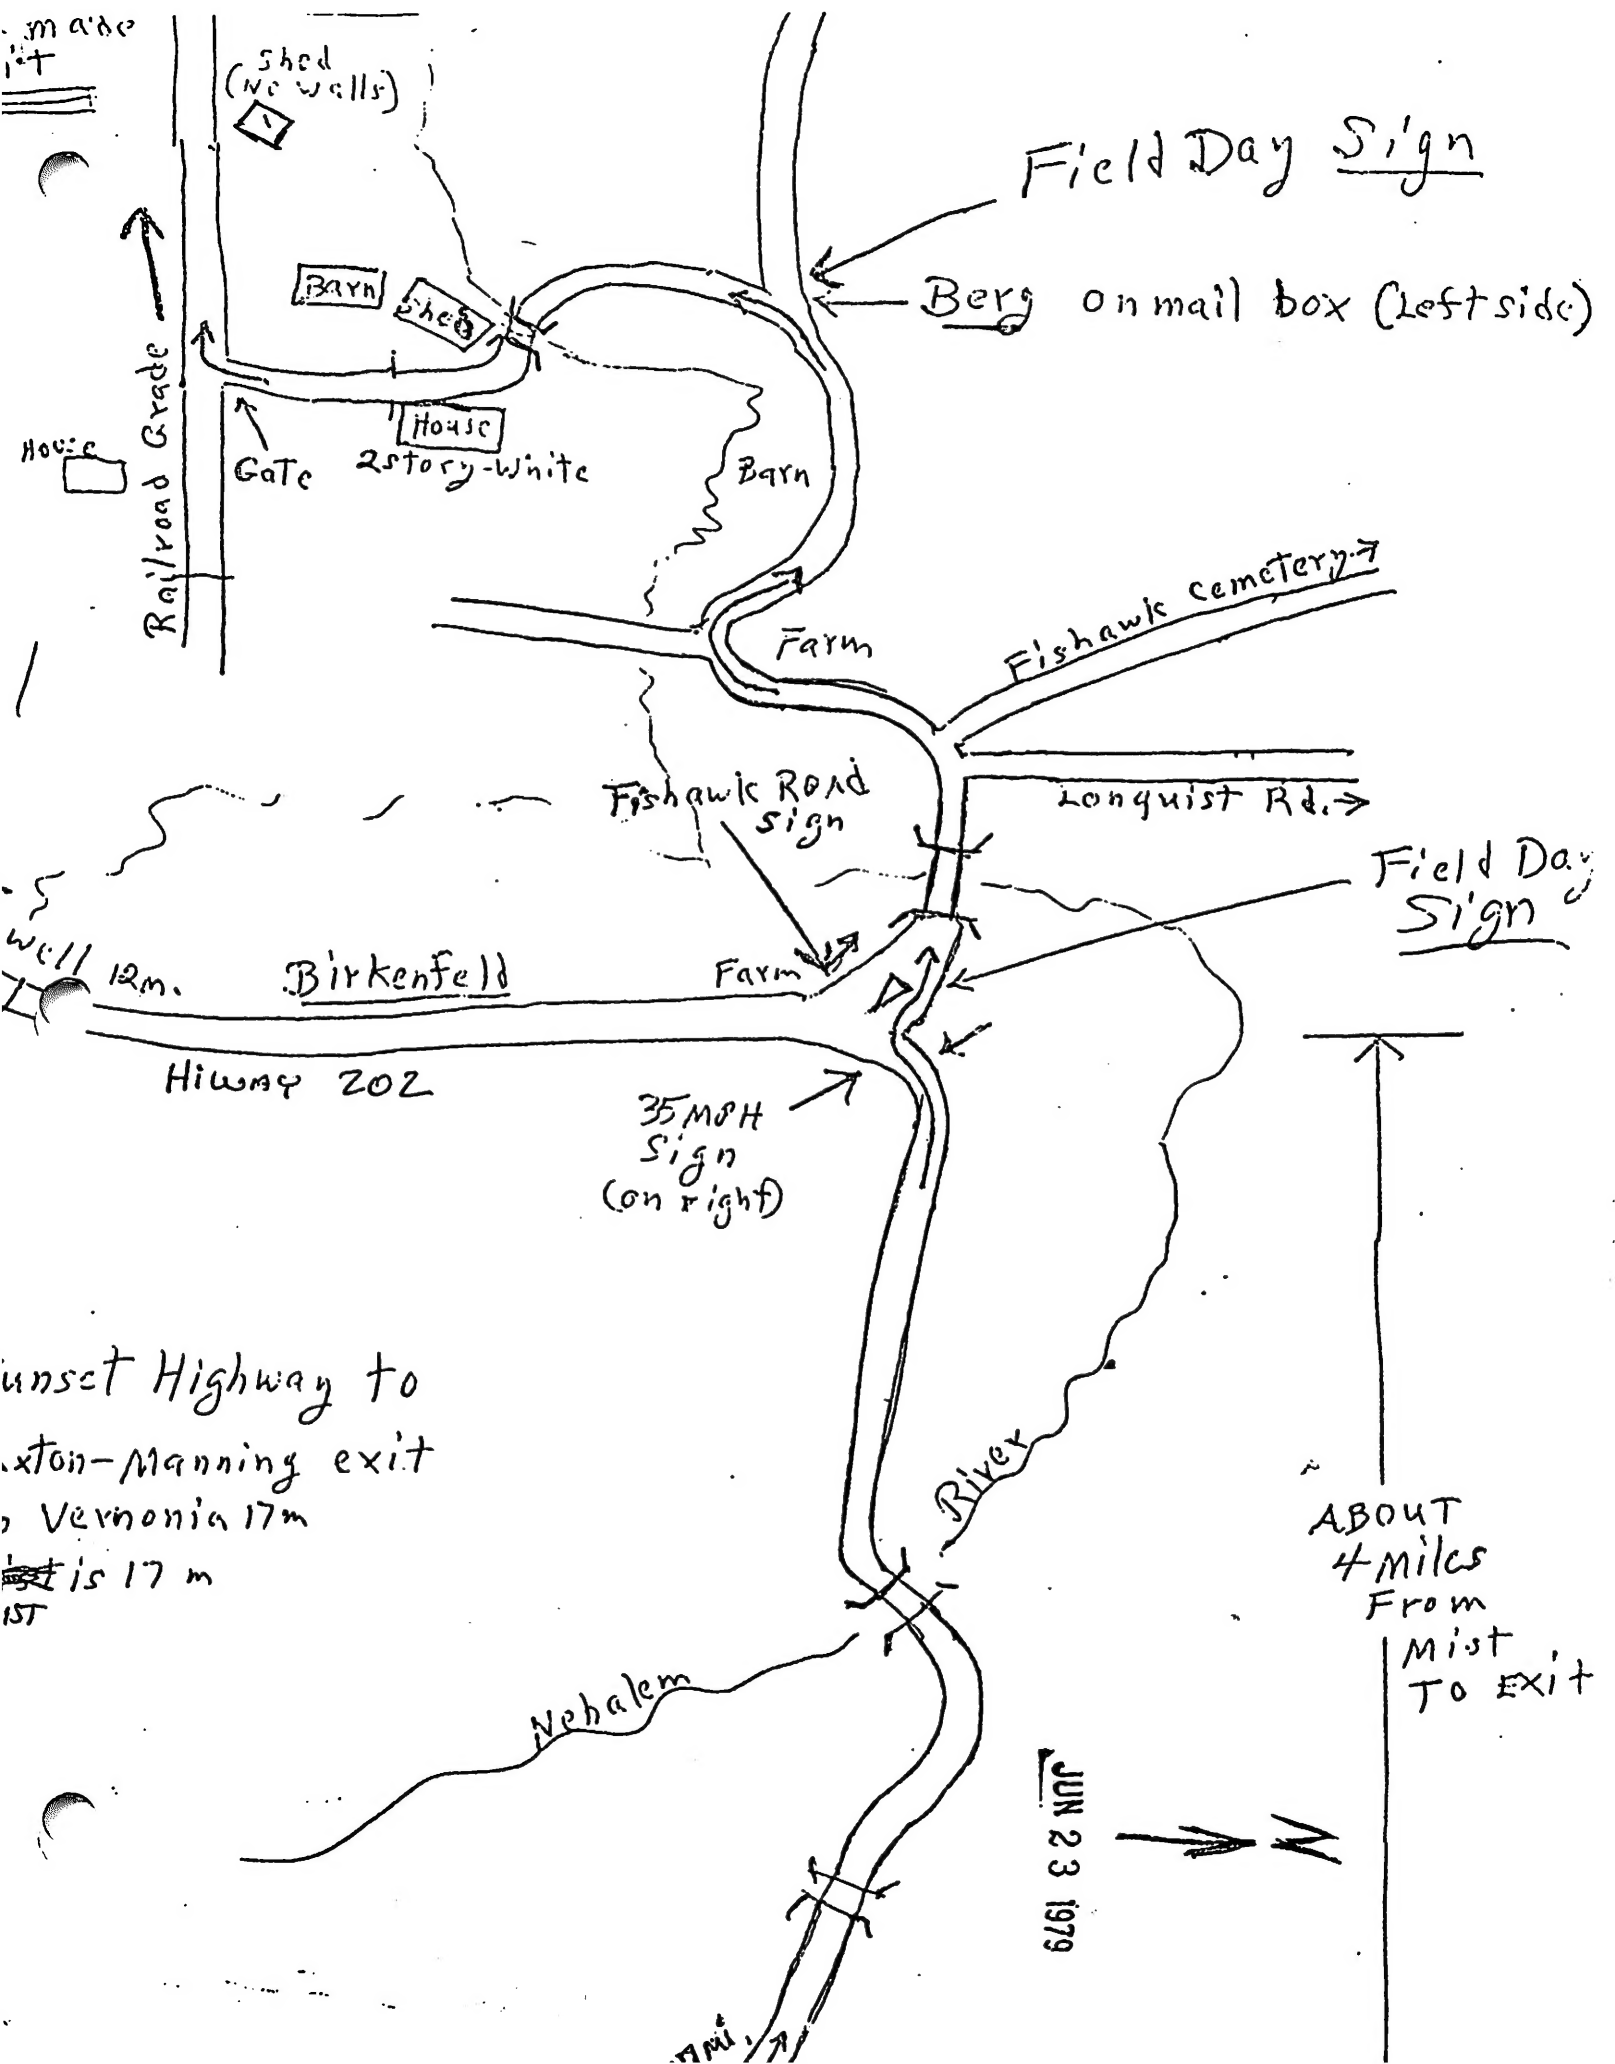 made
it
shed
(No walls)
Field Day Sign
Berg on mail box (Left side)
Barn
Shed
Railroad Grade
House
House
2story-White
Gate
Barn
Fishawk Cemetery
Farm
Lonquist Rd.
Fishawk Road
Sign
Field Day
Sign
well
12m.
Birkenfeld
Farm
Hiway 202
35 MPH
Sign
(on right)
unset Highway to
xton-Manning exit
Vernonia 17m
is 17 m
IST
River
Nehalem
ABOUT
4 Miles
From
Mist
TO EXit
JUN 23 1979
N
mi.